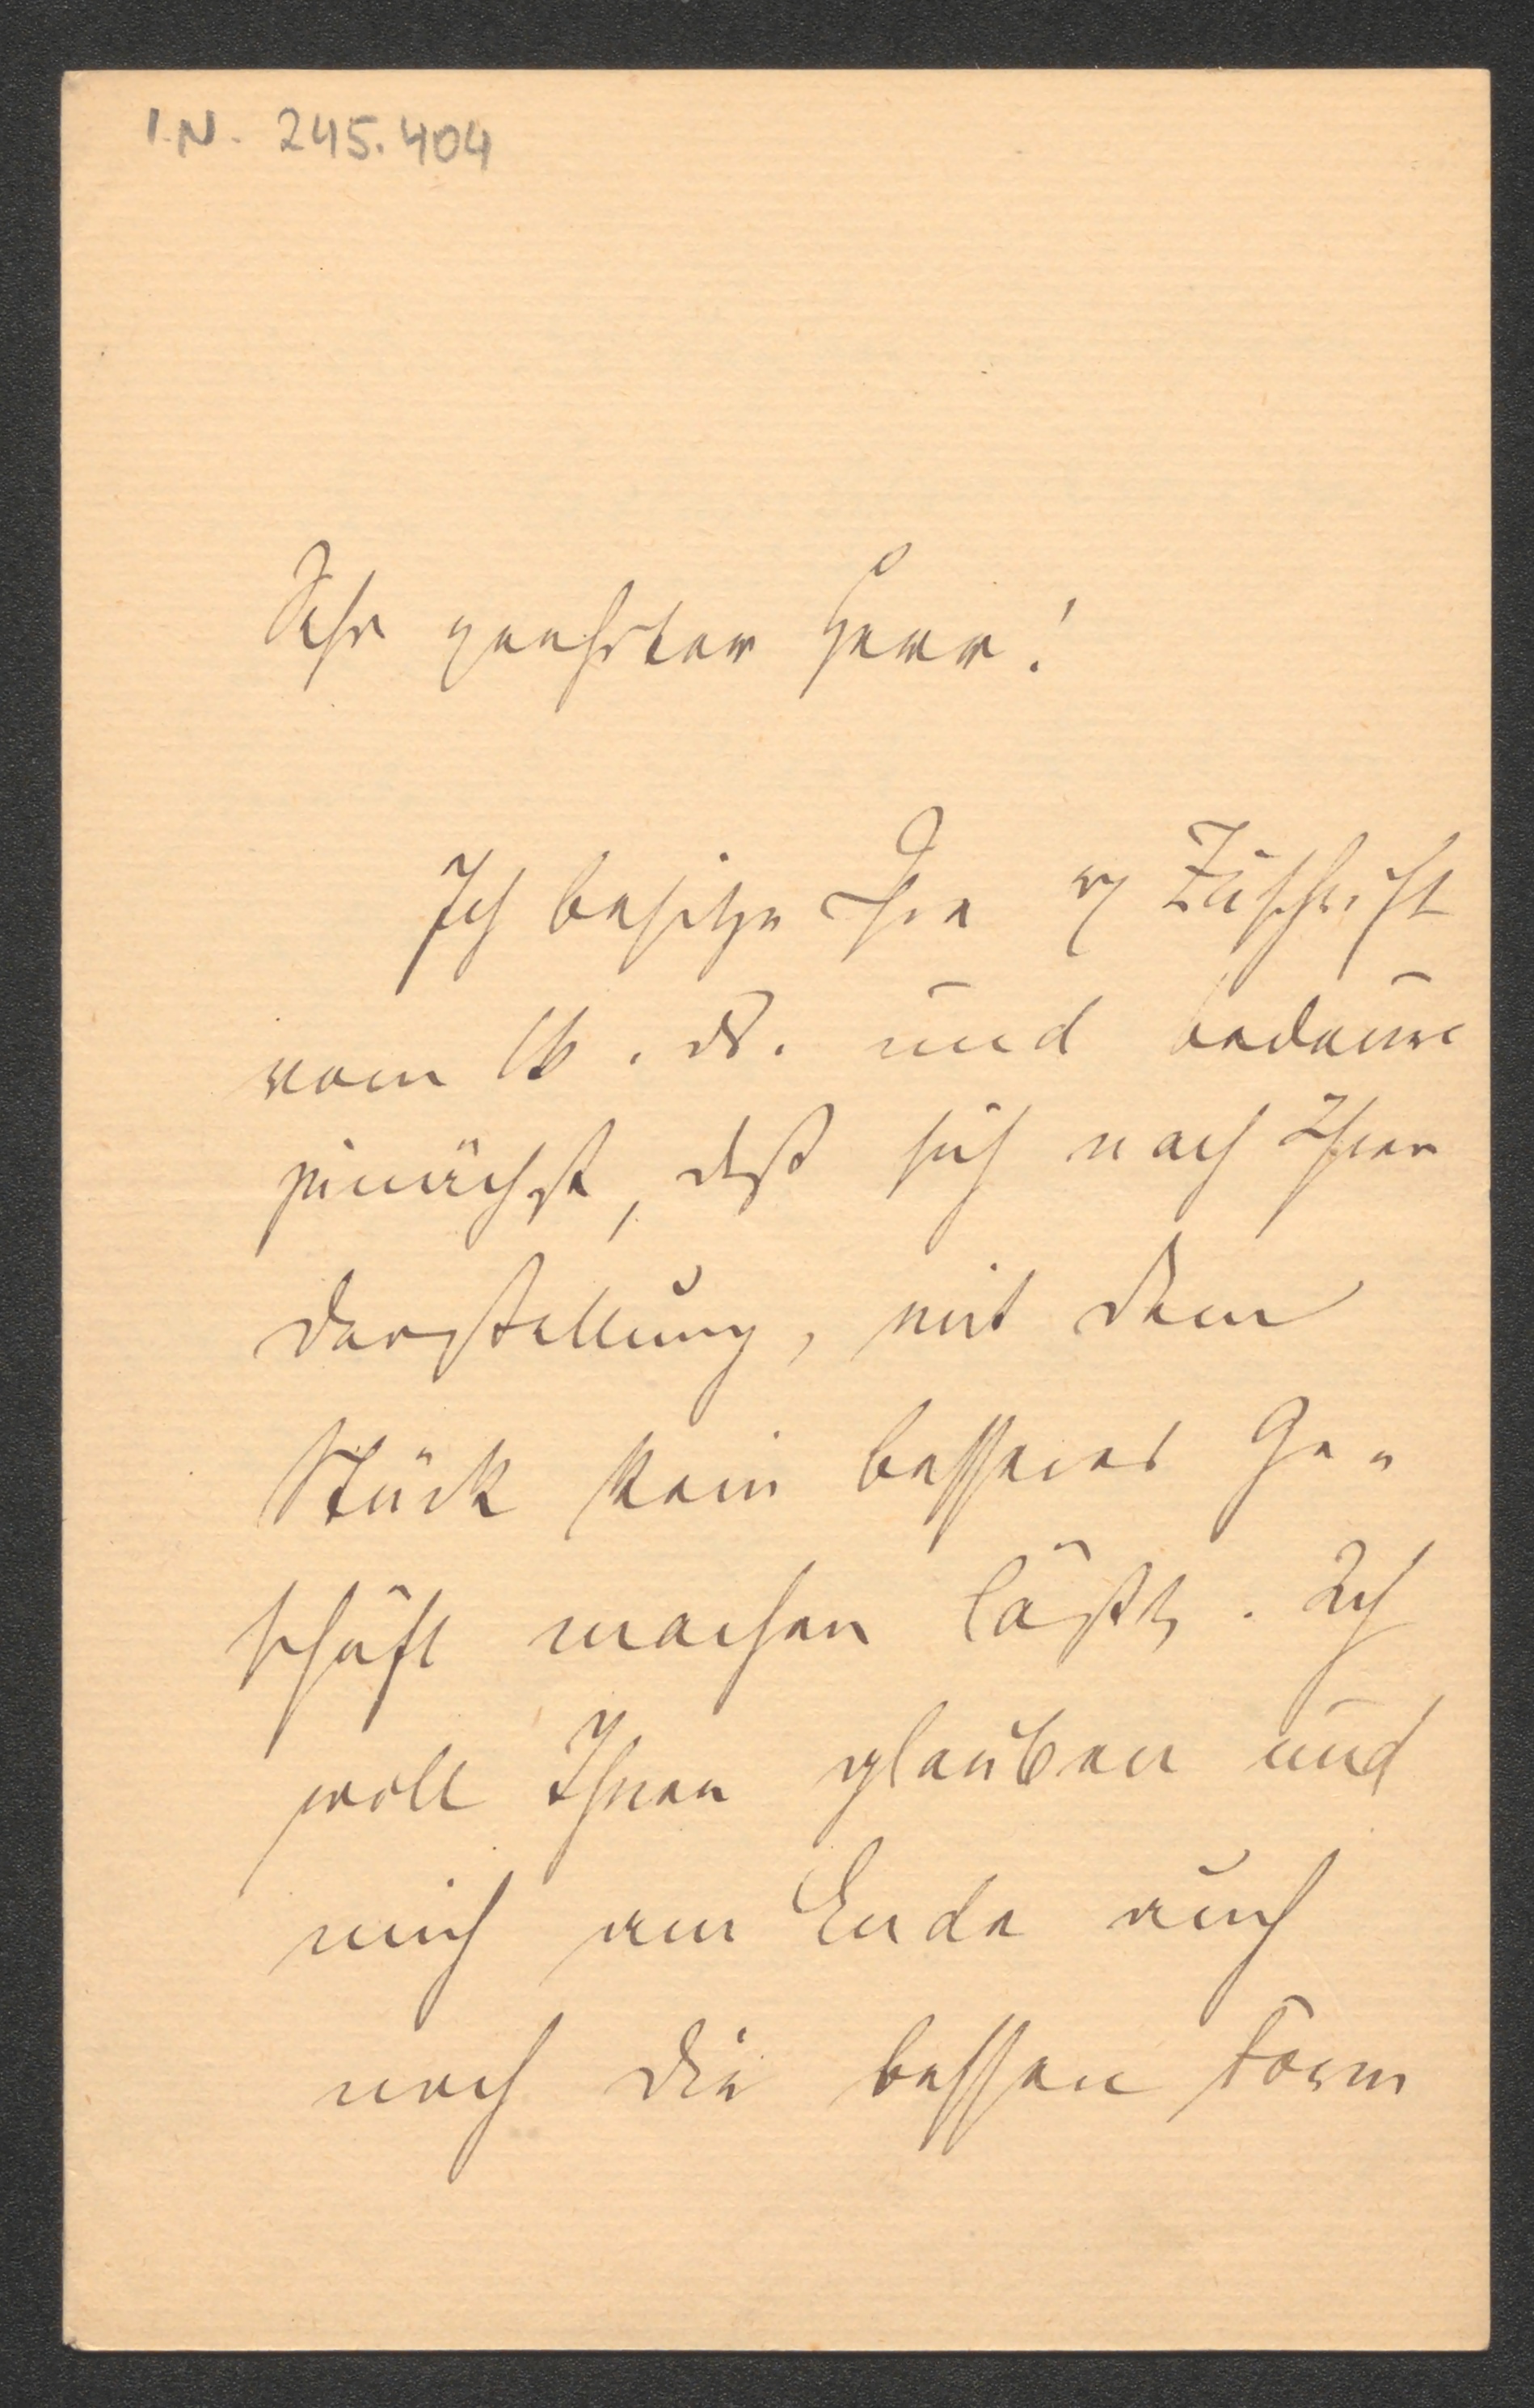 I.N. 245.404
Sehr geehrter Herr!
Ich besitze Ihre Zuschrift
vom 16. ds. und bedaure
zunächst, daß sich nach Ihrer
Darstellung, mit dem
Stück kein besseres Ge-
schäft machen läßt. Ich
will Ihnen glauben und
mich am Ende auch
noch die bessere Form